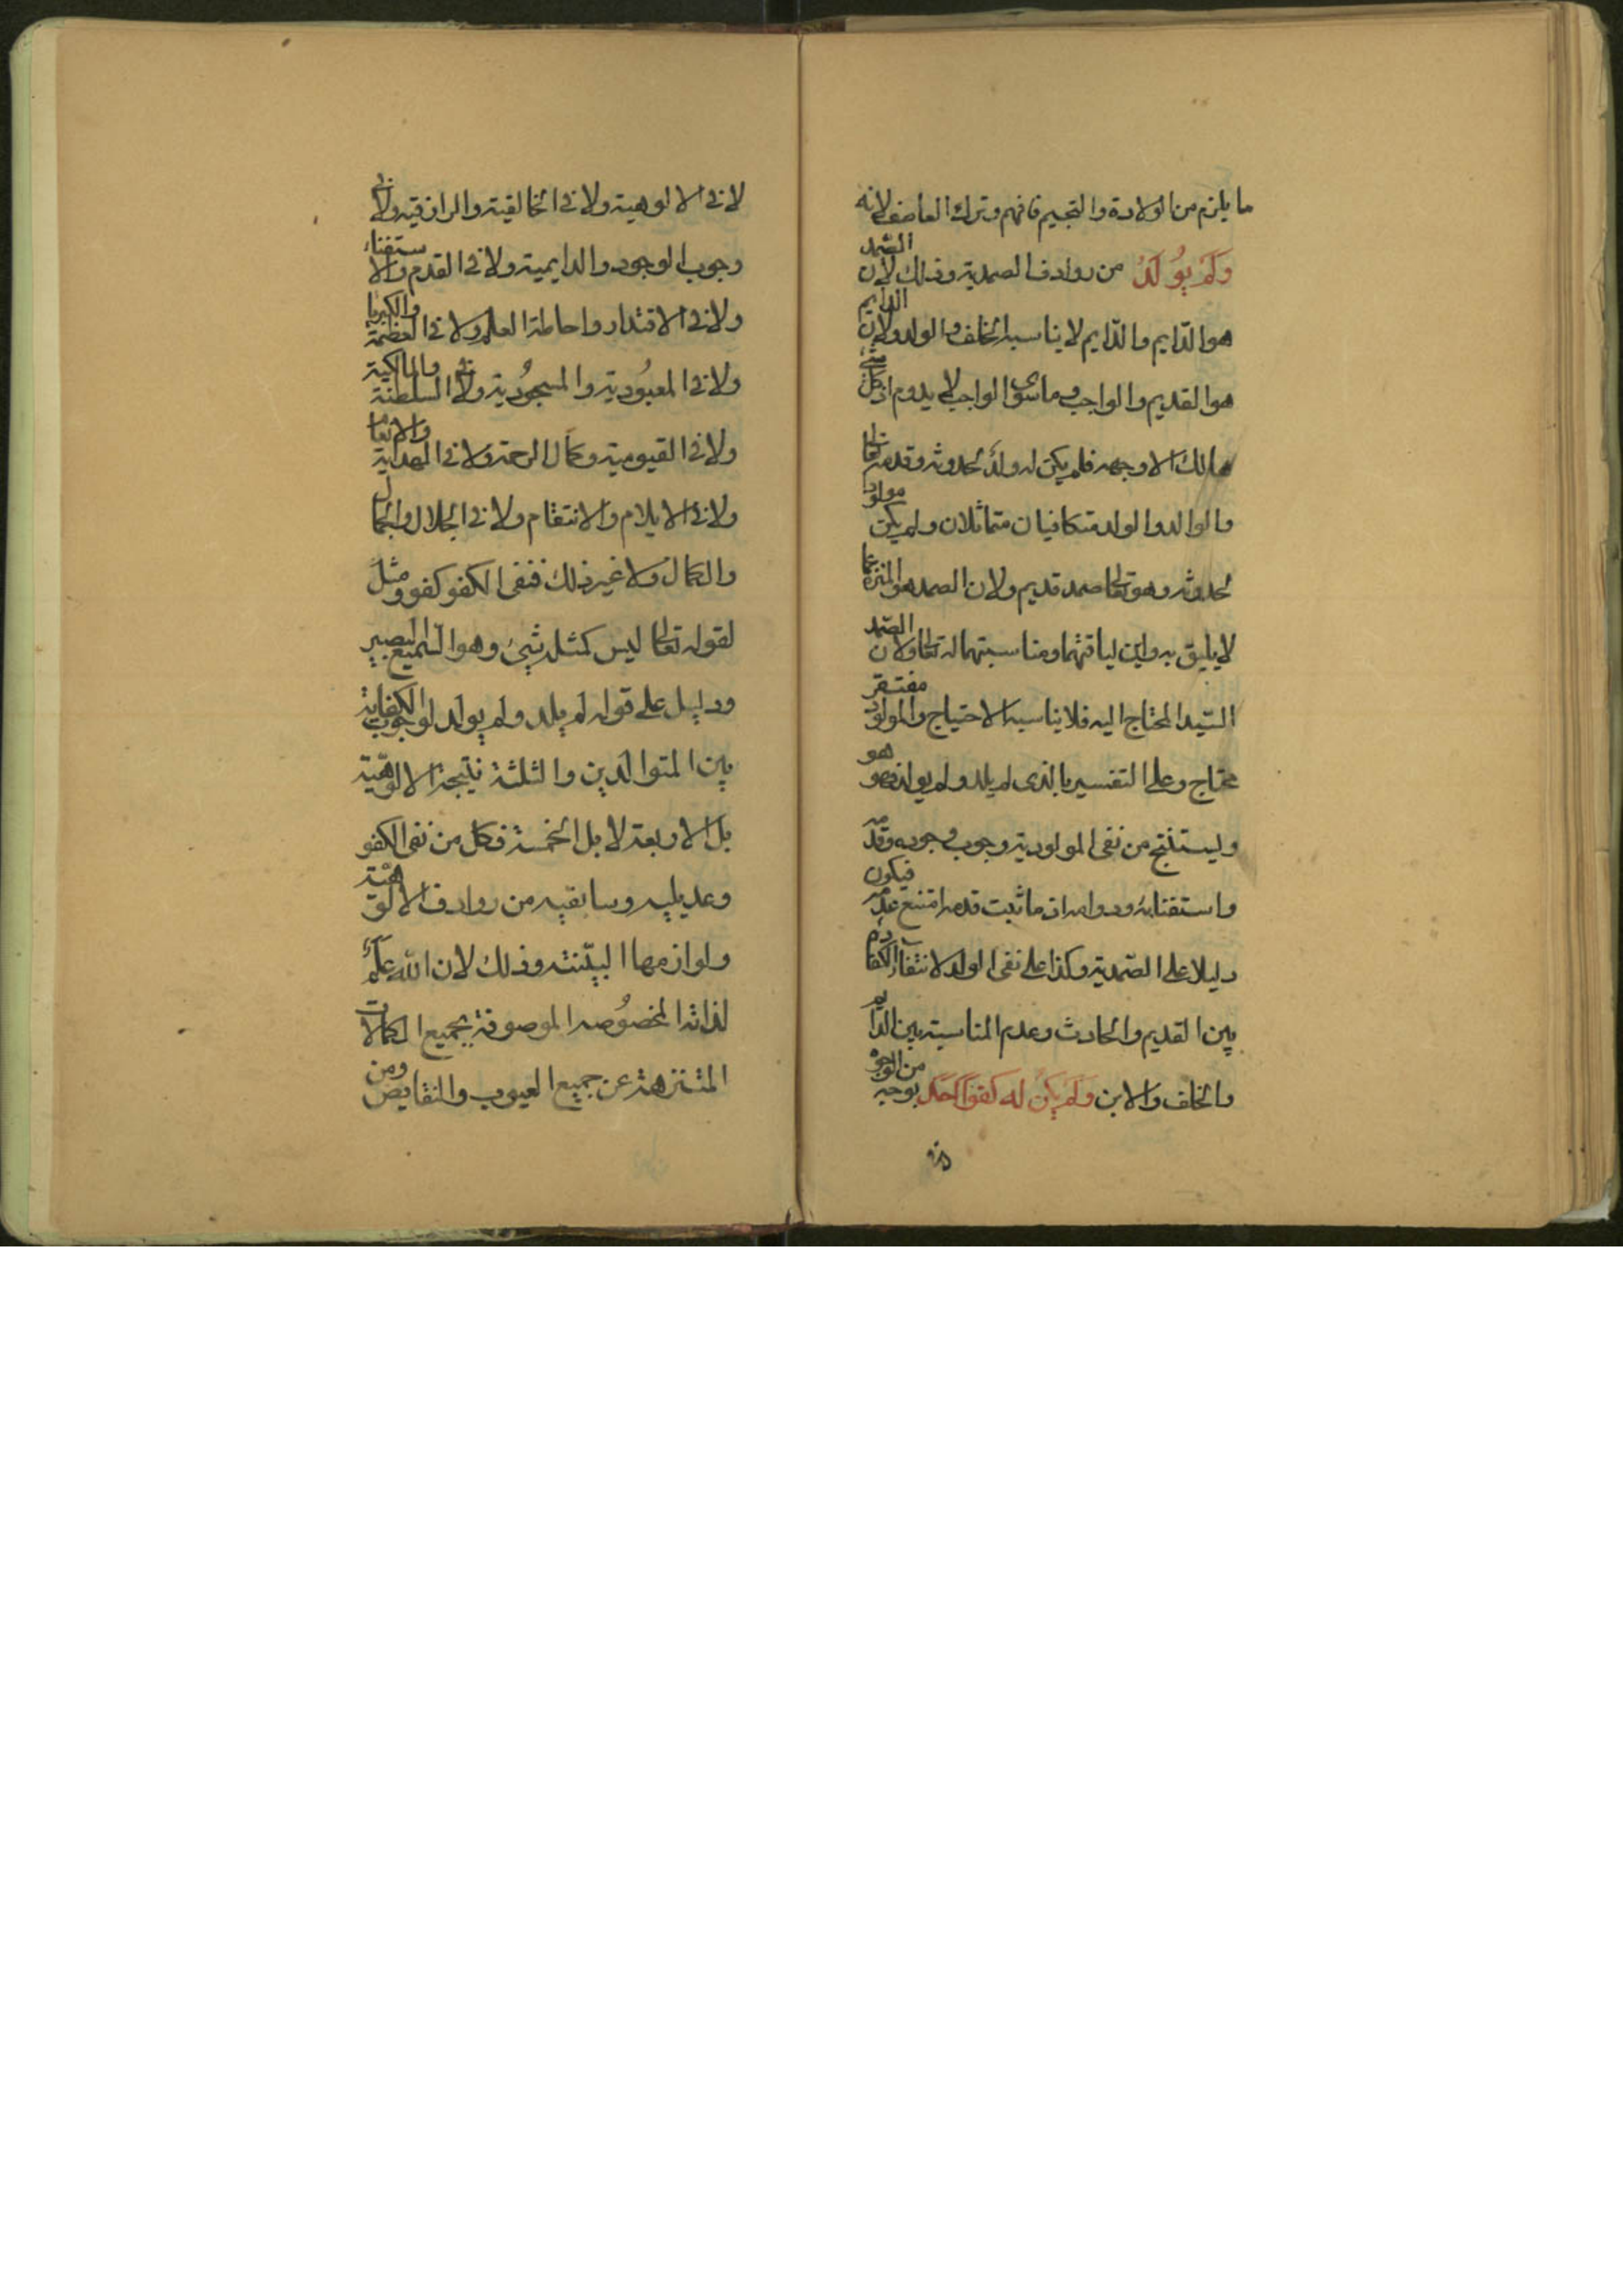 ما يلزم من الولادة والتجسيم فافهم وترك العاصف لانه
وَلَمْ يُولَدْ من روادف الصمدية وذلك لان الصّمد
هو الدّايم والدّايم لا يناسبه الخلف والولد ولان الدايم
هو القديم والواجب وما سوى الواجب لا يدوم اذ كل شئ
هالك الا وجهه فلم يكن له ولدٌ لحدوثه وقدمه تعالى
والوالد والولد متكافيان متماثلان ولم يكن مولودا
لحدوثه وهو تعالى صمد قديم ولان الصمد هو المنزه عما
لا يليق به واين لياقتهما ومناسبتهما له تعالى ولان الصّمد
السّيد المحتاج اليه فلا يناسبه الاحتياج والمولود مفتقر
محتاج وعلى التفسير بالذى لم يلد ولم يولد فهو هو
ويستنتج من نفى المولودية وجوب وجوده وقدمه
واستغنايه ودوامه اذ ما ثبت قدمه امتنع عدمه فيكون
دليلا على الصّمدية وكذا على نفى الولد لانتفاء الكفاءة
بين القديم والحادث وعدم المناسبة بين الدّايم
والخلف والابن وَلَمْ يَكُنْ له كفوًا احَدٌ بوجه من الوجوه
لا فى الالوهية ولا فى الخالقية والرازقية ولا فى
وجوب الوجود والدايمية ولا فى القدم والاستغناء
ولا فى الاقتدار واحاطة العلم ولا فى العظمة والكبريا
ولا فى المعبُودية والمسجُودية ولا فى السلطنة والمالكية
ولا فى القيومية وكمال الرحمة ولا فى الهداية والانعام
ولا فى الايلام والانتقام ولا فى الجلال والجمال
والكمال ولا غير ذلك فنفى الكفو كفو ومثل
لقوله تعالى ليس كمثله شئ وهو السّميع البصير
ودليل على قوله لم يلد ولم يولد لوجوب الكفاية
بين المتوالدين والثلثة نتيجة الالوهيّة
بل الاربعة لا بل الخمسة فكل من نفى الكفو
وعديليه وسابقيه من روادف الالوهيّة
ولوازمها البيّنة وذلك لان الله علمٌ
لذاته المخصُوصه الموصوفة بجميع الكمالات
المتنزهة عن جميع العيوب والنقايص ومن